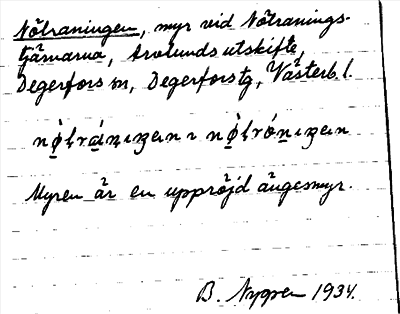 Nötraningen, myr vid Nötranings-
tjärnarna, Arvlunds utskifte,
Degerfors sn, Degerfors tg, Västerb. l.
Myren är en uppröjd ängesmyr.
B. Nygren 1934.